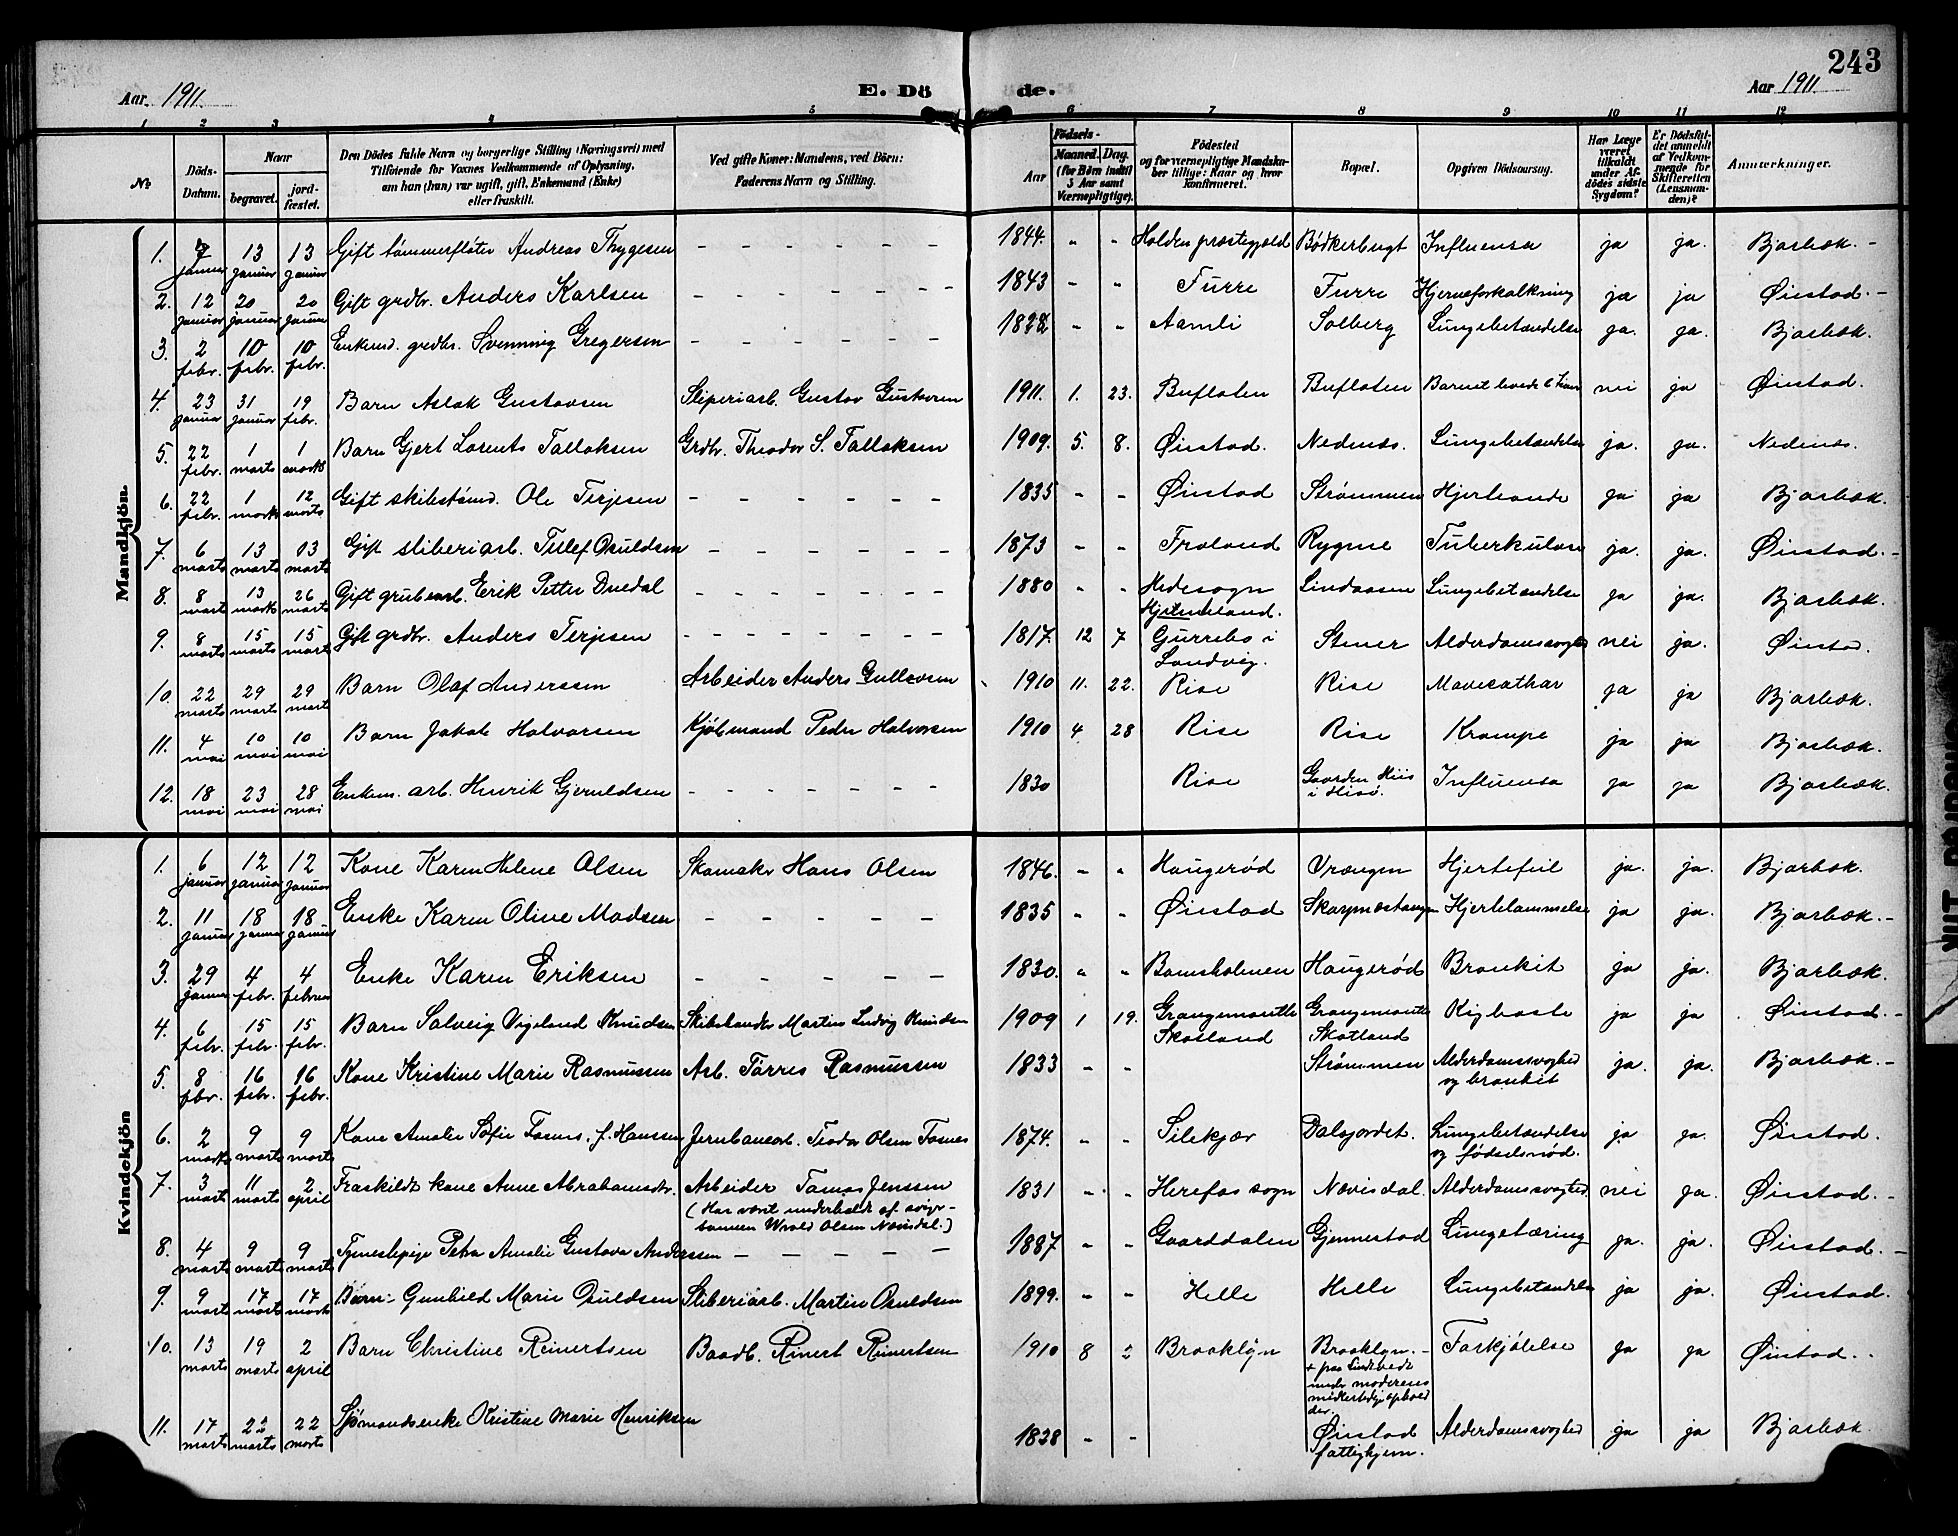 243
Aar 1911. E. Dö de. Aar 1911
1 2 3 4 5 6 7 8 9 10 11 12
№ Döds-Datum. Naar begravet. jordfæstet. Den Dödes fulde Navn og borgerlige Stilling (Næringsvei) med Tilföiende for Voxnes Vedkommende af Oplysning, om han (hun) var ugift, gift, Enkemand (Enke) eller fraskilt. Ved gifte Koner: Mandens, ved Börn: Faderens Navn og Stilling. Födsels- Aar Maaned. Dag. (for Börn indtil 5 Aar samt Værnepligtige). Födested og for værnepligtige Mandskaber tillige: Naar og hvor konfirmeret. Bopæl. Opgiven Dödsaarsag. Har Læge været tilkaldt under Afdödes sidste Sygdom? Er Dödsfaldet anmeldt af Vedkommende for Skifteretten (Lensmanden)? Anmærkninger.
Mandkjön.
1. 7 januar 13 januar 13 januar Gift tømmerfløter Andreas Thygesen – – – – – – 1844. " " Holden præstegjeld Bødkerbugt Influensa ja ja. Bjorbæk. -
2. 12 januar 20 januar 20 januar Gift grdbr. Anders Karlsen – – – – – – 1843 " " Furre Furre Hjerneforkalkning ja ja Øiestad. -
3. 2 febr. 10 febr. 10 febr. Enkemd. grdbr. Svenning Gregersen – – – – – – 1822 " " Aamli Solberg Lungebetændelse ja. ja. Bjorbæk.
4. 23 januar 31 januar 19 febr. Barn Aslak Gustavsen Sliperiarb. Gustav Gustavsen 1911. 1. 23. Bufloten Bufloten Barnet levede 6 nei ja Øiestad.
5. 22 febr. 1 marts 1 marts Barn Gjert Lorents Tallaksen Grdbr. Theodor S. Tallaksen 1909. 5. 8. Øiestad. Nedenæs. Lungebetændelse ja. ja. Nedenæs.
6. 22 febr. 1 marts 12 marts Gift skibstømd. Ole Terjesen – – – – – – 1835 " " Øiestad Strømmen ja ja Bjorbæk.
7. 6 marts 13 marts 13 marts Gift sliberiarb. Tellef Osuldsen – – – – – – 1873 " " Froland Rygene Tuberkulose ja. ja. Øiestad. -
8. 8 marts 13 marts 26 marts Gift grubearb. Erik Petter Duedal 1880 " " Hedesogn Lindaasen Lungebetændelse ja ja. Bjorbæk.
9. 8 marts 15 marts 15 marts Gift grdbr. Anders Terjesen – – – – – – – 1817. 12 7 Gurrebo i Landvig. Stener Alderdomssvaghed nei ja. Øiestad
10. 22 marts 29 marts 29 marts Barn Olaf Anderssen Arbeider Anders Gullovsen 1910 11. 22. Rise Rise Mavecathar ja ja Bjorbæk.
11. 4 mai 10 mai 10 mai Barn Jakob Halvorsen Kjøbmand Peder Halvorsen 1910 4 28 Rise Rise Krampe ja ja Bjorbæk.
12. 18 mai 23 mai 28 mai Enkem. arb. Henrik Gjeruldsen – – – – – – 1830 Rise Gaarden Hiis i Hisø. Influensa ja ja Bjorbæk.
Kvindekjön
1. 6 januar 12 januar 12 januar Kone Karen Helene Olsen Skomaker Hans Olsen 1846. " " Haugerød Vrængen Hjertefeil ja. ja. Bjorbæk.
2. 11 januar 18 januar 18 januar Enke Karen Oline Madsen – – – – – 1835 " " Øiestad Skarpnæstangen Hjertelammelse ja ja. Bjorbæk. -
3. 29 januar 4 febr. 4 februar Enke Karen Eriksen – – – – – 1830. " " Bomsholmen Haugerød Bronkit ja ja. Bjorbæk.
4. 6 febr. 15 febr. 15 febr. Barn Solveig Vigeland Knudsen Skibstømdr Martin Ludvig Knudsen 1909 1 19. Grangemouth Skotland Grangemouth Skotland Kighoste ja ja Øiestad. -
5. 8 febr. 16 febr. 16 febr. Kone Kristine Marie Rasmussen Arb. Tørres Rasmussen 1833 " " Strømmen Alderdomssvaghed og bronkit ja. ja. Bjorbæk. -
6. 2 marts 9 marts 9 marts Kone Amalie Sofie Fosnes, f. Hanssen Jernbanearb. Teodor Olsen Fosnes 1874. " " Silekjær Dalsjordet. Lungebetændelse og fødselsnød. ja ja. Øiestad.
7. 3 marts 11 marts 2 april Fraskildt kone Anne Abrahamsdtr. Arbeider Tomas Jenssen 1831 " " Herefos sogn Nævisdal. Alderdomssvaghed nei ja. Øiestad. -
(Har været underholdt af svigersønnen Olsen Nævisdal.)
8. 4 marts 9 marts 9 marts Tjenestepige Petra Amalie Gustava Anderssen – – – – 1887 " " Gaarddalen Gjennestad Lungetæring ja. ja. Øiestad. -
9. 9 marts 17 marts 17 marts Barn Gunhild Marie Osuldsen Sliberiarb. Martin Osuldsen 1899. " " Helle Helle Lungebetændelse ja ja. Øiestad.
10. 13 marts 19 marts 2 april Barn Christine Reinertsen Baadb. Reinert Reinertsen 1910 8 2 Brooklyn Brooklyn. - + paa Lindtvedt under moderens midlertidige ophold der. Forkjølelse ja ja Øiestad. .
11. 17 marts 22 marts 22 marts Sjømandsenke Kristine Marie Henriksen 1838 " " Øiestad fattighjem. Alderdomssvaghed ja ja Bjorbæk.